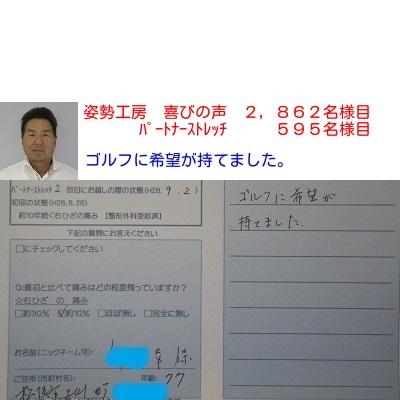 姿勢工房　喜びの声　２，８６２名様目
ﾊﾟｰﾄﾅｰｽﾄﾚｯﾁ　５９５名様目
ゴルフに希望が持てました。
ﾊﾟｰﾄﾅｰｽﾄﾚｯﾁ2回目にお越しの際の状態(H28. 9. 2)
初回の状態(H28.8.26)
約10年続く右ひざの痛み 【整形外科受診済】
下記の質問にお答えください
□にチェックしてください
Q:最初と比べて痛みはどの程度残っていますか?
☆右ひざ の 痛み
□約30% ☑約10% □ほぼ無し □完全に無し
お名前(ニックネーム可):
ご住所(市町村名): 年齢: 77
ゴルフに希望が
持てました.